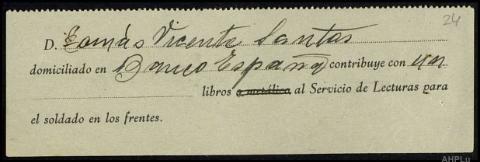 24
D. Tomás Vicente Santos
domiciliado en Banco España contribuye con un
libros o metálico al Servicio de Lecturas para
el soldado en los frentes.
AHPLu